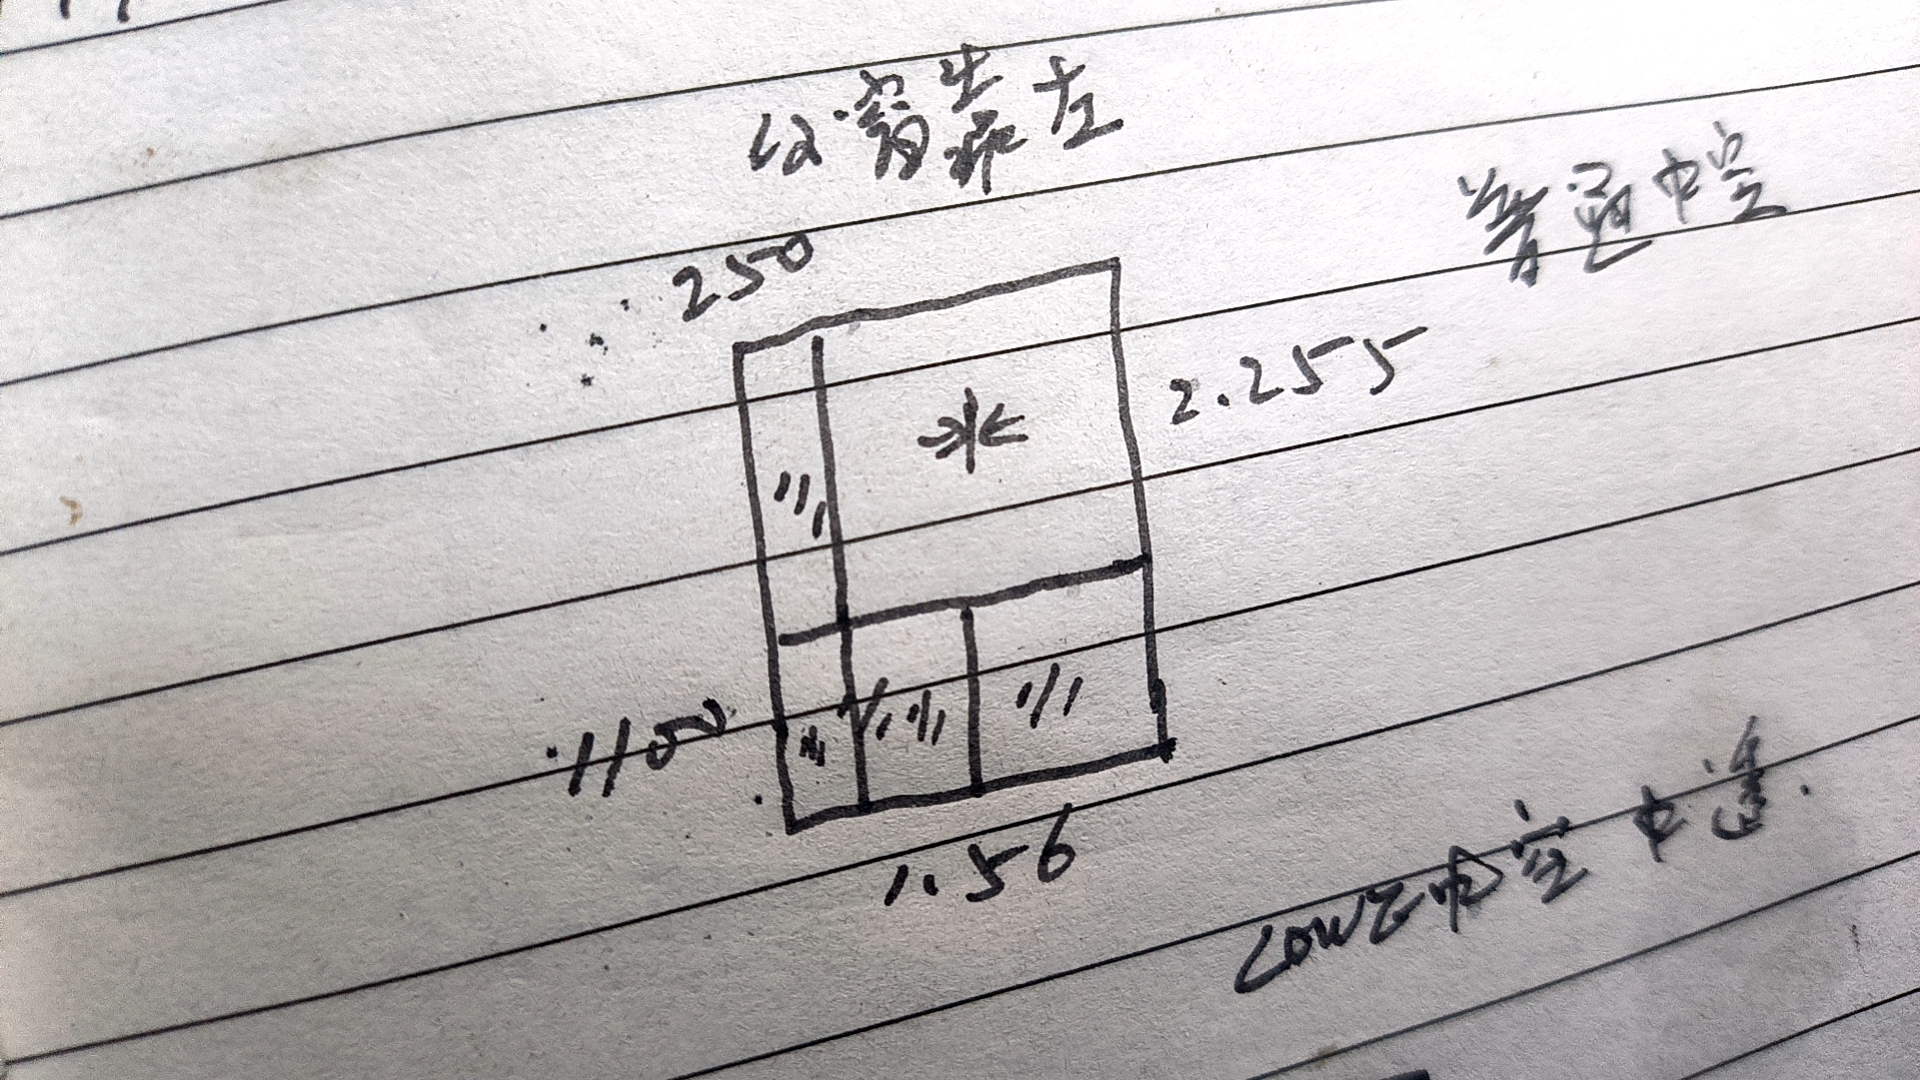 左
普通中空
250
2.255
1100
1.56
LOWE中空 中透.